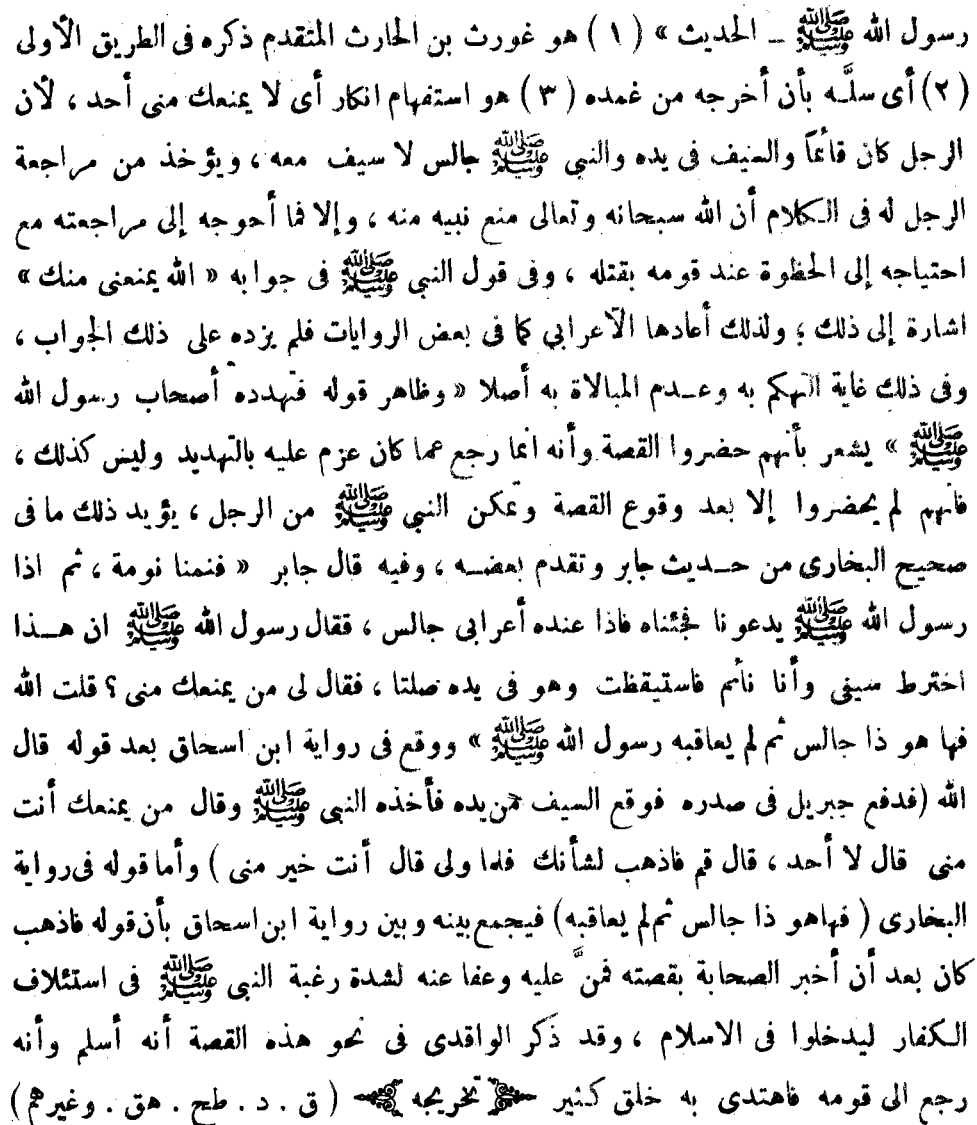 رسول الله ﷺ ـ الحديث » ( ١ ) هو غورث بن الحارث المتقدم ذكره فى الطريق الأولى
( ٢ ) أى سلَّه بأن أخرجه من غمده ( ٣ ) هو استفهام انكار أى لا يمنعك منى أحد ، لأن
الرجل كان قائماً والسيف فى يده والنبى ﷺ جالس لا سيف معه ، ويؤخذ من مراجعة
الرجل له فى الكلام أن الله سبحانه وتعالى منع نبيه منه ، وإلا فما أحوجه إلى مراجعته مع
احتياجه إلى الحظوة عند قومه بقتله ، وفى قول النبى ﷺ فى جوابه « الله يمنعنى منك »
اشارة إلى ذلك ؛ ولذلك أعادها الأعرابى كما فى بعض الروايات فلم يزده على ذلك الجواب ،
وفى ذلك غاية التهكم به وعدم المبالاة به أصلا « وظاهر قوله فتهدده أصحاب رسول الله
ﷺ » يشعر بأنهم حضروا القصة وأنه انما رجع عما كان عزم عليه بالتهديد وليس كذلك ،
فانهم لم يحضروا إلا بعد وقوع القصة وتمكن النبى ﷺ من الرجل ، يؤيد ذلك ما فى
صحيح البخارى من حديث جابر وتقدم بعضه ، وفيه قال جابر « فنمنا نومة ، ثم اذا
رسول الله ﷺ يدعونا فجئناه فاذا عنده أعرابى جالس ، فقال رسول الله ﷺ ان هذا
اخترط سيفى وأنا نائم فاستيقظت وهو فى يده صلتا ، فقال لى من يمنعك منى ؟ قلت الله
فها هو ذا جالس ثم لم يعاقبه رسول الله ﷺ » ووقع فى رواية ابن اسحاق بعد قوله قال
الله (فدفع جبريل فى صدره فوقع السيف من يده فأخذه النبى ﷺ وقال من يمنعك أنت
منى قال لا أحد ، قال قم فاذهب لشأنك فلما ولى قال أنت خير منى ) وأما قوله فى رواية
البخارى ( فهاهو ذا جالس ثم لم يعاقبه) فيجمع بينه وبين رواية ابن اسحاق بأن قوله فاذهب
كان بعد أن أخبر الصحابة بقصته فمنَّ عليه وعفا عنه لشدة رغبة النبى ﷺ فى استئلاف
الكفار ليدخلوا فى الاسلام ، وقد ذكر الواقدى فى نحو هذه القصة أنه أسلم وأنه
رجع الى قومه فاهتدى به خلق كثير تخريجه ( ق . د . طح . هق . وغيرهم )